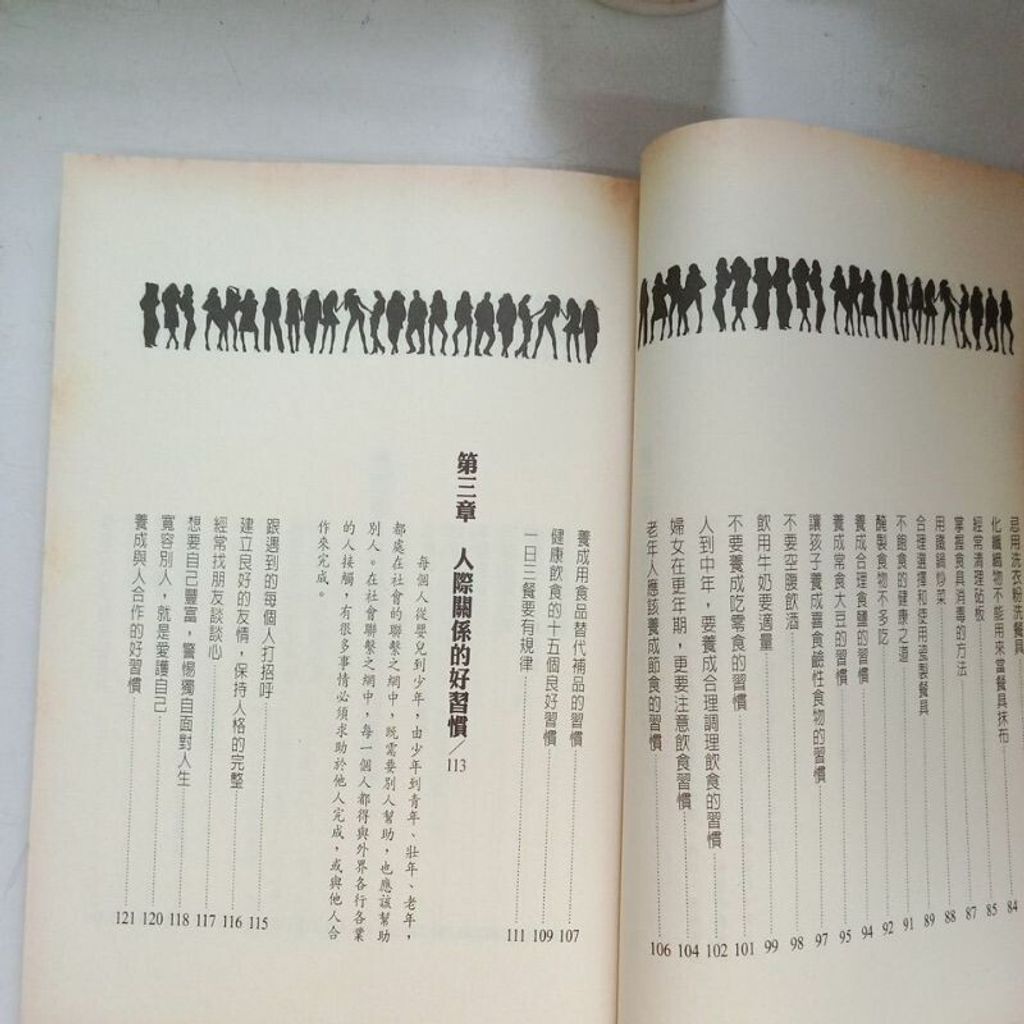 忌用洗衣粉洗餐具 84
化纖織物不能用來當餐具抹布 85
經常清理砧板 87
掌握食具消毒的方法 88
用鐵鍋炒菜 89
合理選擇和使用瓷製餐具 91
不飽食的健康之道 92
醃製食物不多吃 94
養成合理食鹽的習慣 95
養成常食大豆的習慣
讓孩子養成喜食鹼性食物的習慣 97
不要空腹飲酒 98
飲用牛奶要適量 99
不要養成吃零食的習慣 101
人到中年，要養成合理調理飲食的習慣 102
婦女在更年期，更要注意飲食習慣 104
老年人應該養成節食的習慣 106
養成用食品替代補品的習慣 107
健康飲食的十五個良好習慣 109
一日三餐要有規律 111
第三章 人際關係的好習慣／113
每個人從嬰兒到少年，由少年到青年、壯年、老年，
都處在社會的聯繫之網中，既需要別人幫助，也應該幫助
別人。在社會聯繫之網中，每一個人都得與外界各行各業
的人接觸，有很多事情必須求助於他人完成，或與他人合
作來完成。
跟遇到的每個人打招呼 115
建立良好的友情，保持人格的完整 116
經常找朋友談談心 117
想要自己豐富，警惕獨自面對人生 118
寬容別人，就是愛護自己 120
養成與人合作的好習慣 121